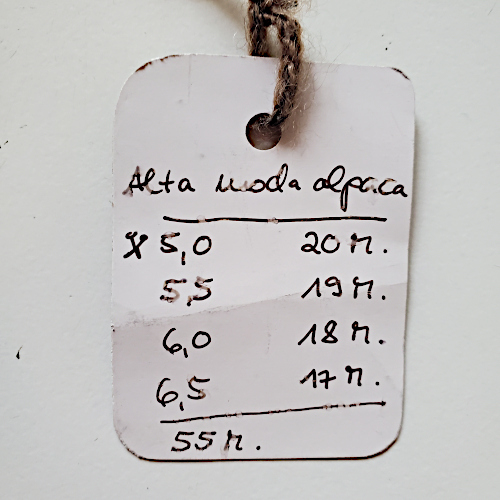 Alta moda alpaca
x 5,0 20 M.
5,5 19 M.
6,0 18 M.
6,5 17 M.
55 M.